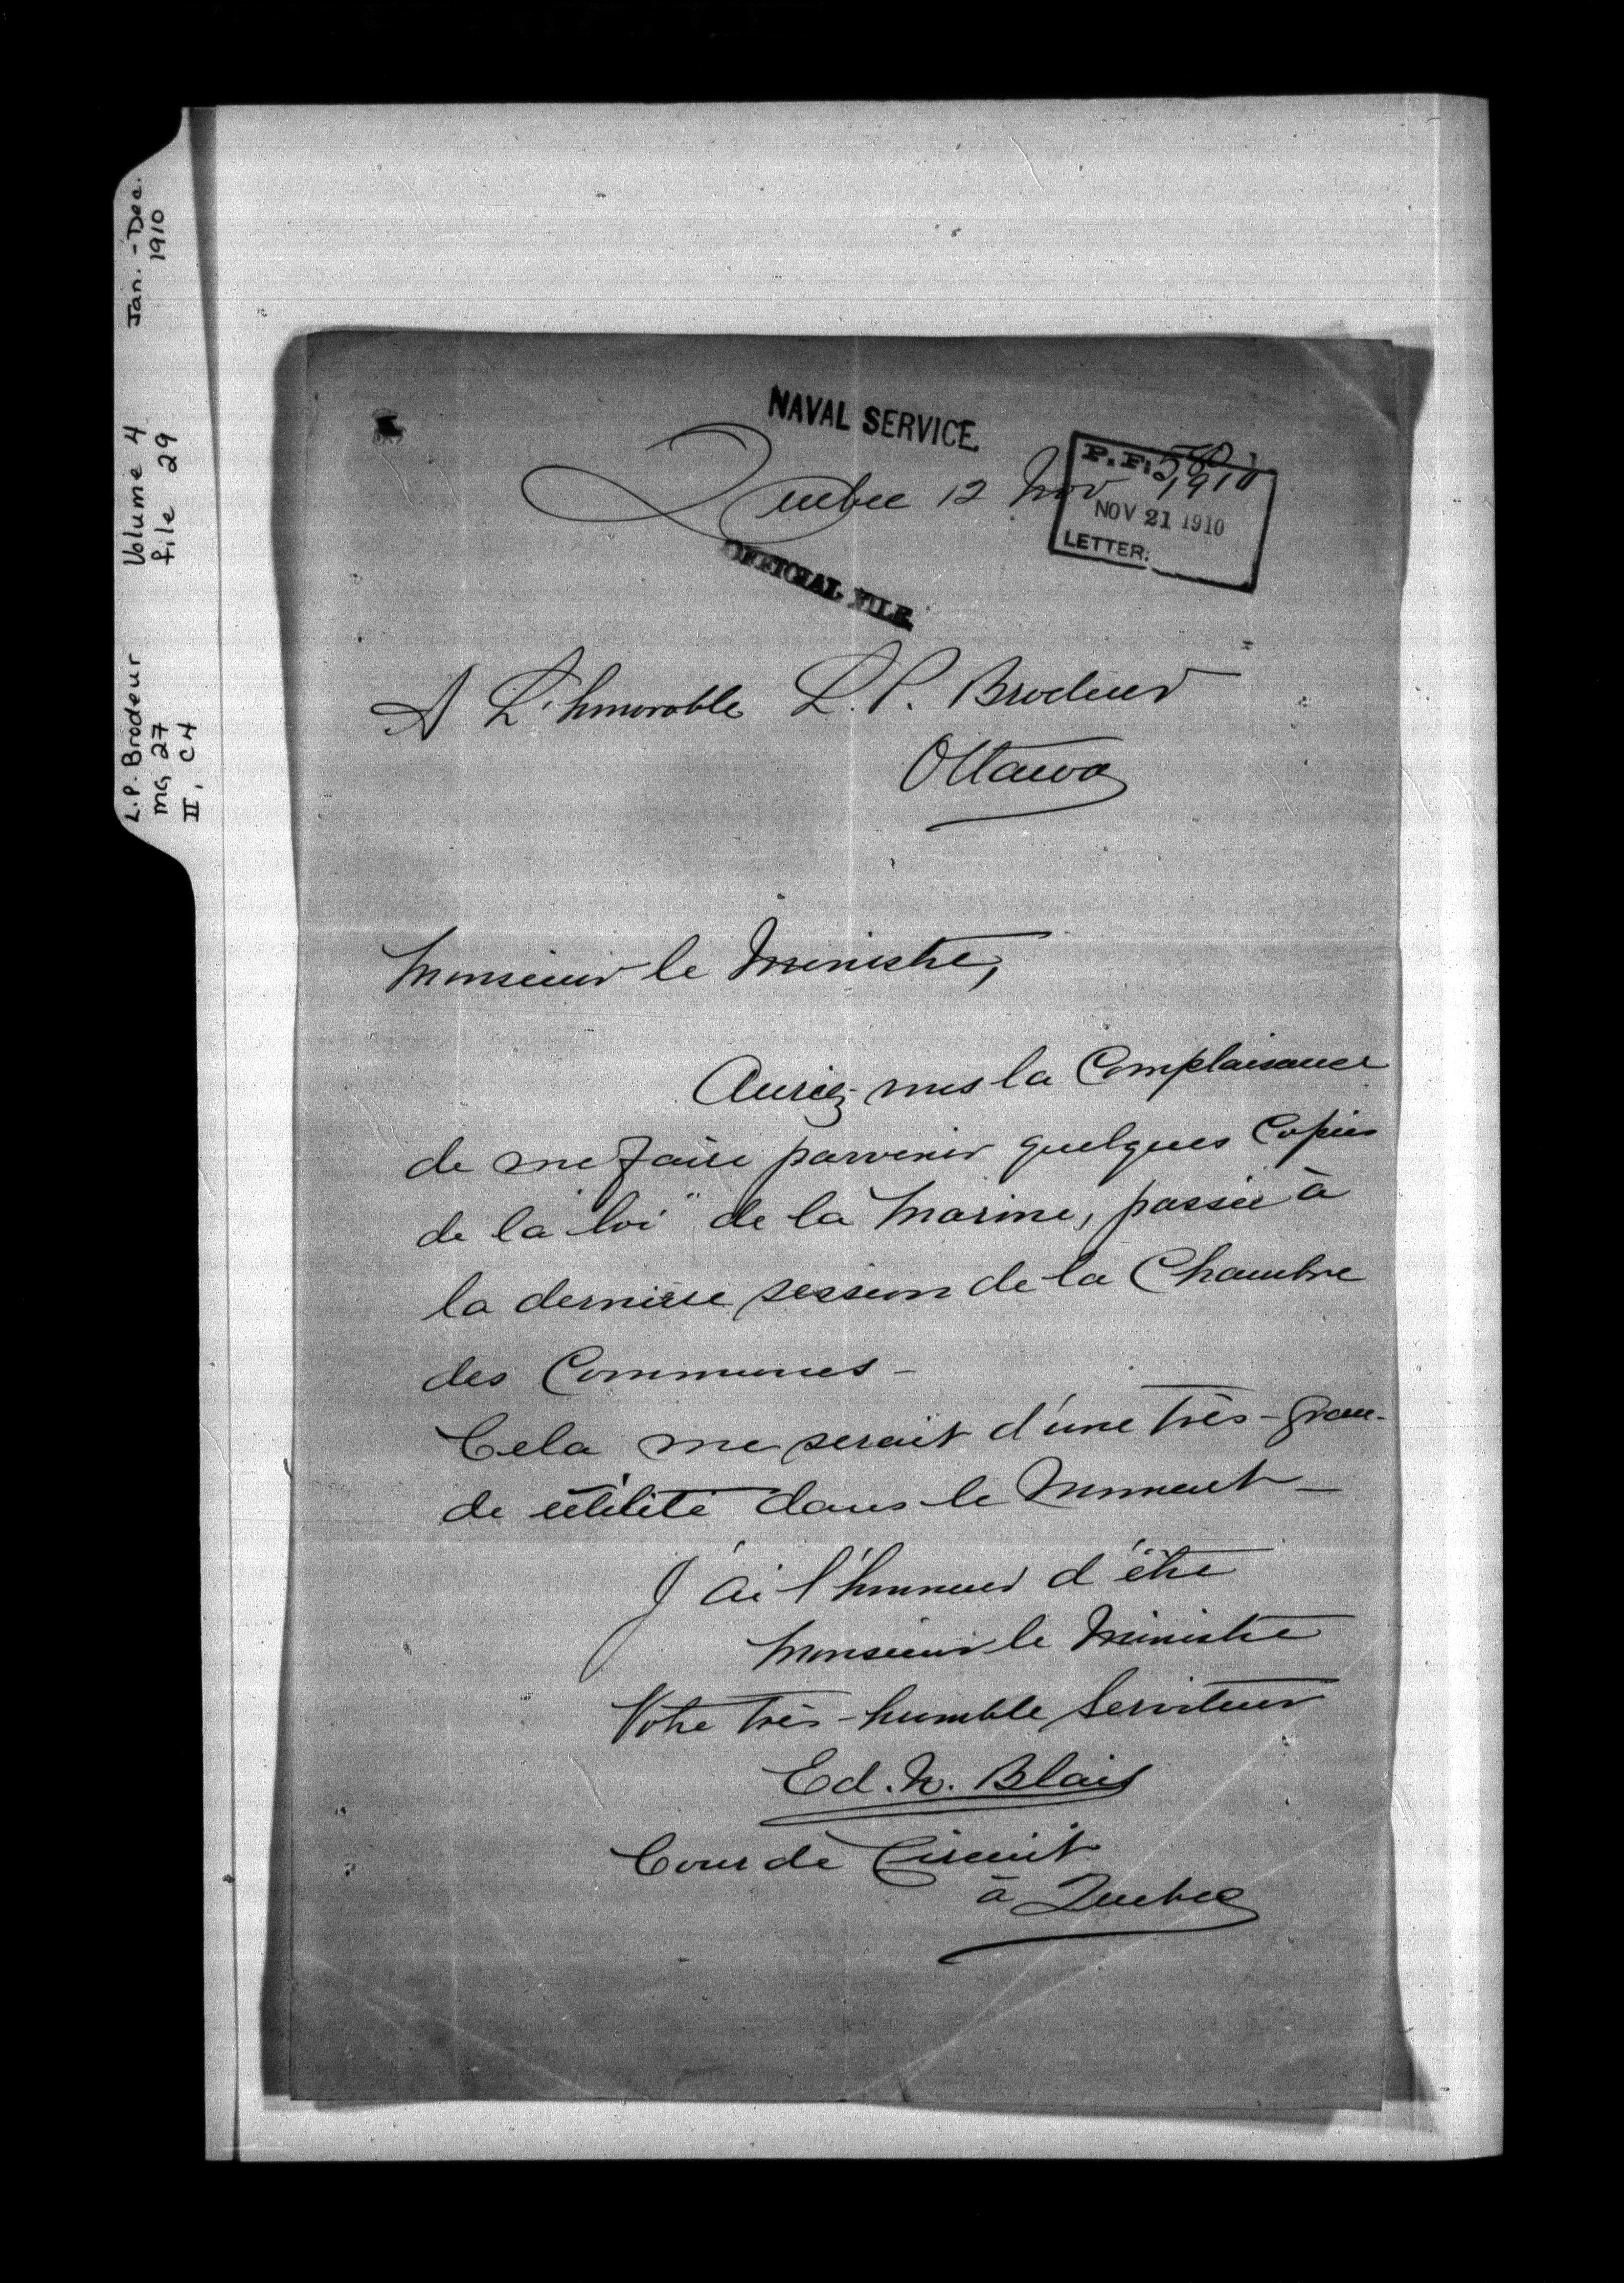 L.P. Brodeur
MG 27
II, C4
Volume 4
file 29
Jan. - Dec.
1910
NAVAL SERVICE
Quebec 12 Nov 1910
P. F. 580
NOV 21 1910
LETTER:
OFFICIAL FILE
A L'honorable L. P. Brodeur
Ottawa
Monsieur le Ministre,
Auriez-vous la Complaisance
de me faire parvenir quelques Copies
de la "loi" de la Marine, passée à
la dernière session de la Chambre
des Communes -
Cela me serait d'une très-gran-
de utilité dans le moment -
J'ai l'honneur d'être
Monsieur le Ministre
Votre très-humble Serviteur
Ed. N. Blais
Cour de Circuit
à Quebec